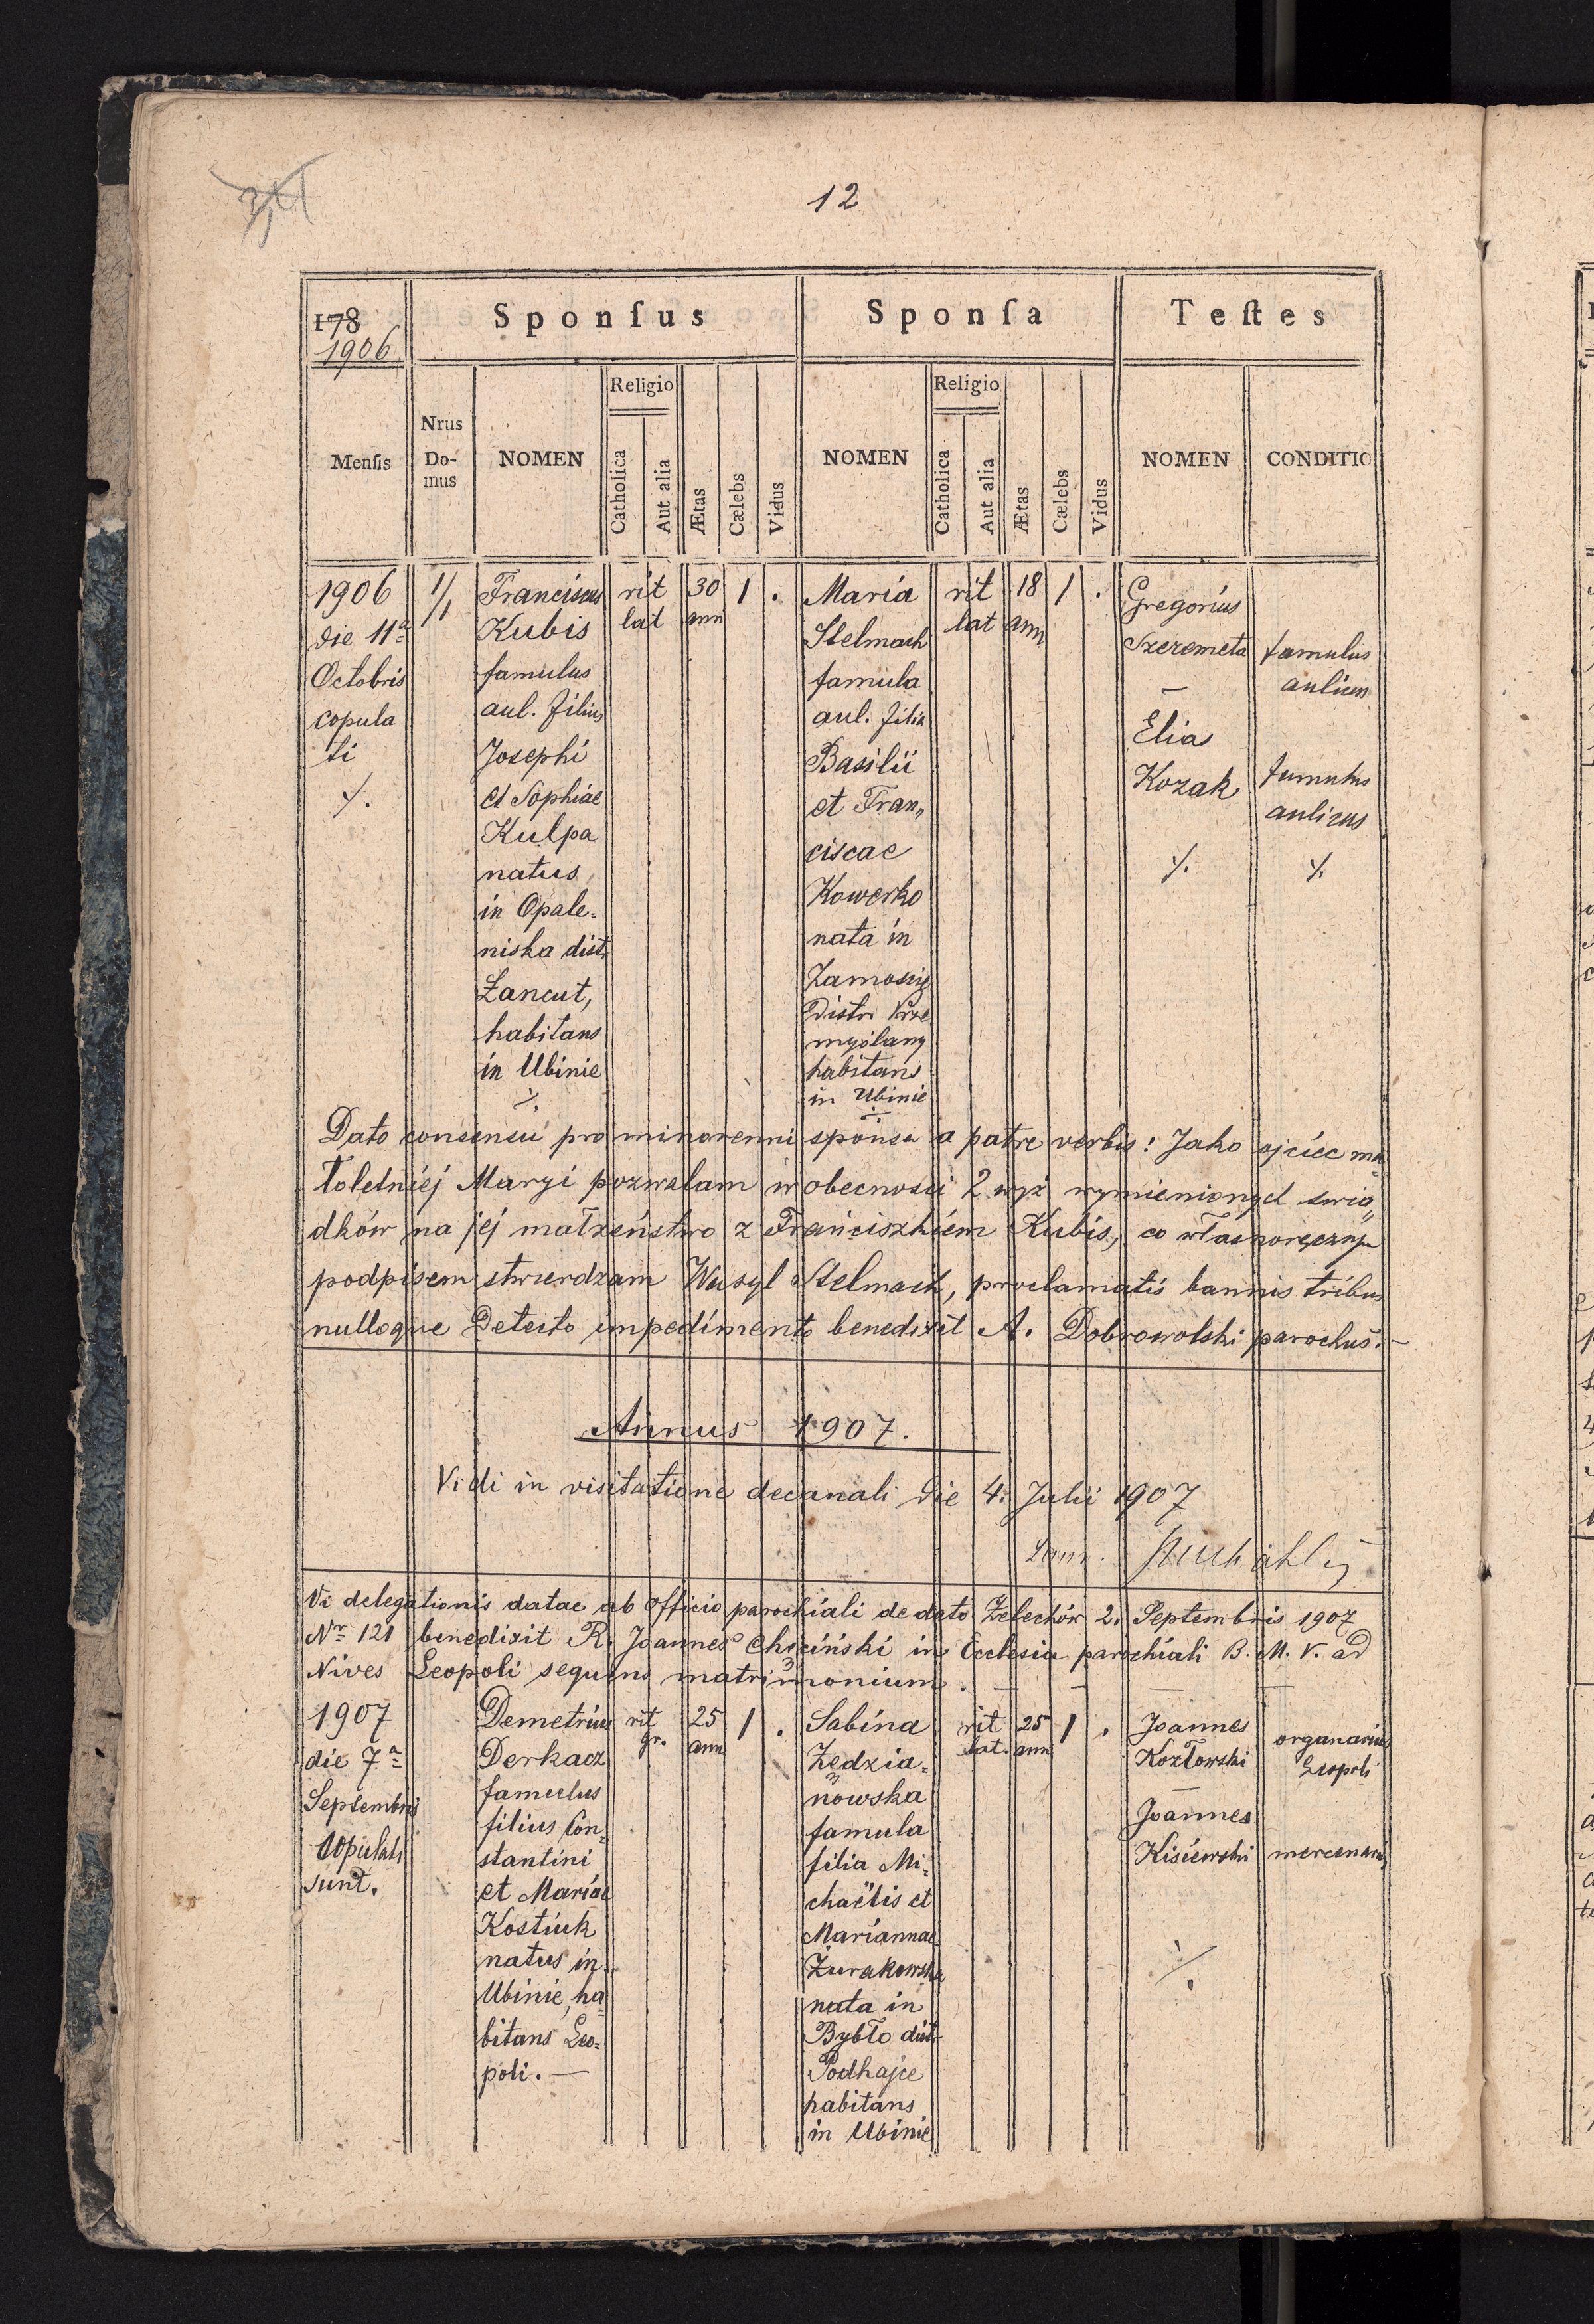 12
178
1906
Sponſus
Sponſa
Teſtes
Menſis
Nrus
Do-
mus
NOMEN
Religio
Catholica
Aut alia
Ætas
Cælebs
Vidus
NOMEN
Religio
Catholica
Aut alia
Ætas
Cælebs
Vidus
NOMEN
CONDITIO
1906
die 11a
Octobris
copula
ti
./.
1/1
Franciscus
Kubis
famulus
aul. filius
Josephi
et Sophiae
Kulpa
natus
in Opale=
niska dist.
Łancut,
habitans
in Ubinie
./.
rit
lat
30
ann
1
.
Maria
Stelmach
famula
aul. filia
Basilii
et Fran„
ciscae
Kowerko
nata in
Zamoście
Distr. Prze
myślany
habitans
in Ubinie
./.
rit
lat
18
ann
1
.
Gregorius
Szeremeta
—
Elias
Kozak
./.
famulus
aulicus
famulus
aulicus
./.
Dato consensu pro minorenni sponsa a patre verbis: Jako ojciec ma
łoletniéj Maryi pozwalam w obecności 2 wyż wymienionych świa„
dków na jéj małżeństwo z Franciszkiem Kubis, co własnoręcznym
podpisem stwierdzam Wasyl Stelmach, proclamatis bannis tribus
nulloque Detecto impedimento benedixit A. Dobrowolski parochus.—
Annus 1907.
Vidi in visitatione decanali die 4. Julii 1907
Vi delegationis datae ab Officio parochiali de dato Żelechów 2. Septembris 1907
Nr 121 benedixit R. Joannes Chęciński in Ecclesia parochiali B. M. V. ad
Nives Leopoli sequens matrimonium. — — — —
1907
die 7a
Septembris
copulati
sunt.
Demetrius
Derkacz
famulus
filius Con=
stantini
et Mariae
Kostiuk
natus in
Ubinie, ha=
bitans Leo=
poli. —
rit
gr.
25
ann
1
.
Sabina
Zędzia=
nowska
famula
filia Mi=
chaëlis et
Mariannae
Żurakowska
nata in
Bybło dist.
Podhajce
habitans
in Ubinie
rit
lat.
25
ann
1
.
Joannes
Kozłowski
—
Joannes
Kisiewski
./.
organarius
Leopoli
mercenarius